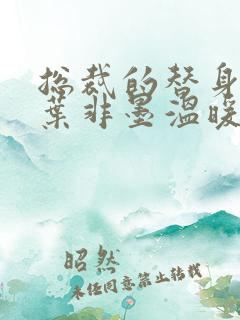 总裁的替身
叶非墨温暖
昭然
未经同意禁止转载